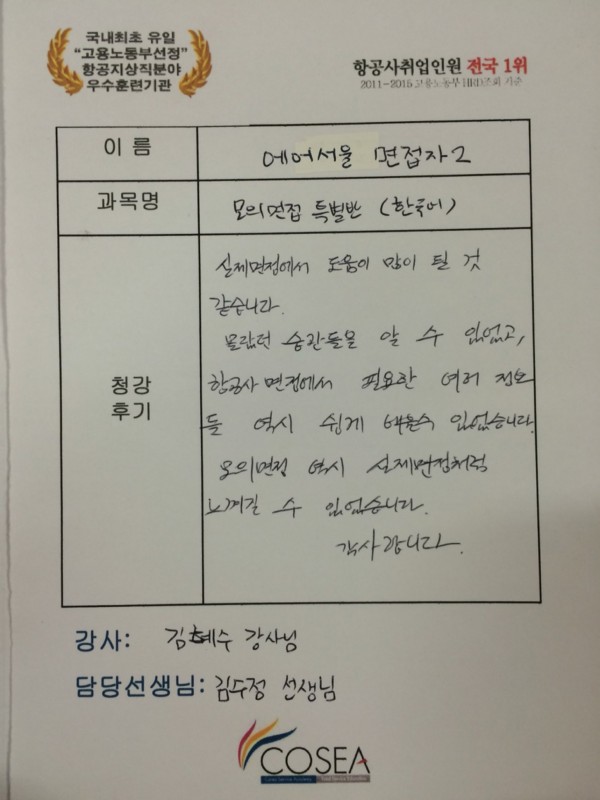 국내최초 유일
"고용노동부선정"
항공지상직분야
우수훈련기관
항공사취업인원 전국 1위
2011-2015고용노동부 HRD조회 기준
이 름
에어서울 면접자2
과목명
모의면접 특별반 (한국어)
청강
후기
실제면접에서 도움이 많이 될 것
같습니다.
몰랐던 습관들을 알 수 있었고,
항공사 면접에서 필요한 여러 정보
들 역시 쉽게 배울수 있었습니다.
모의면접 역시 실제면접처럼
느껴질 수 있었습니다.
감사합니다.
강사: 김혜수 강사님
담당선생님: 김수정 선생님
COSEA